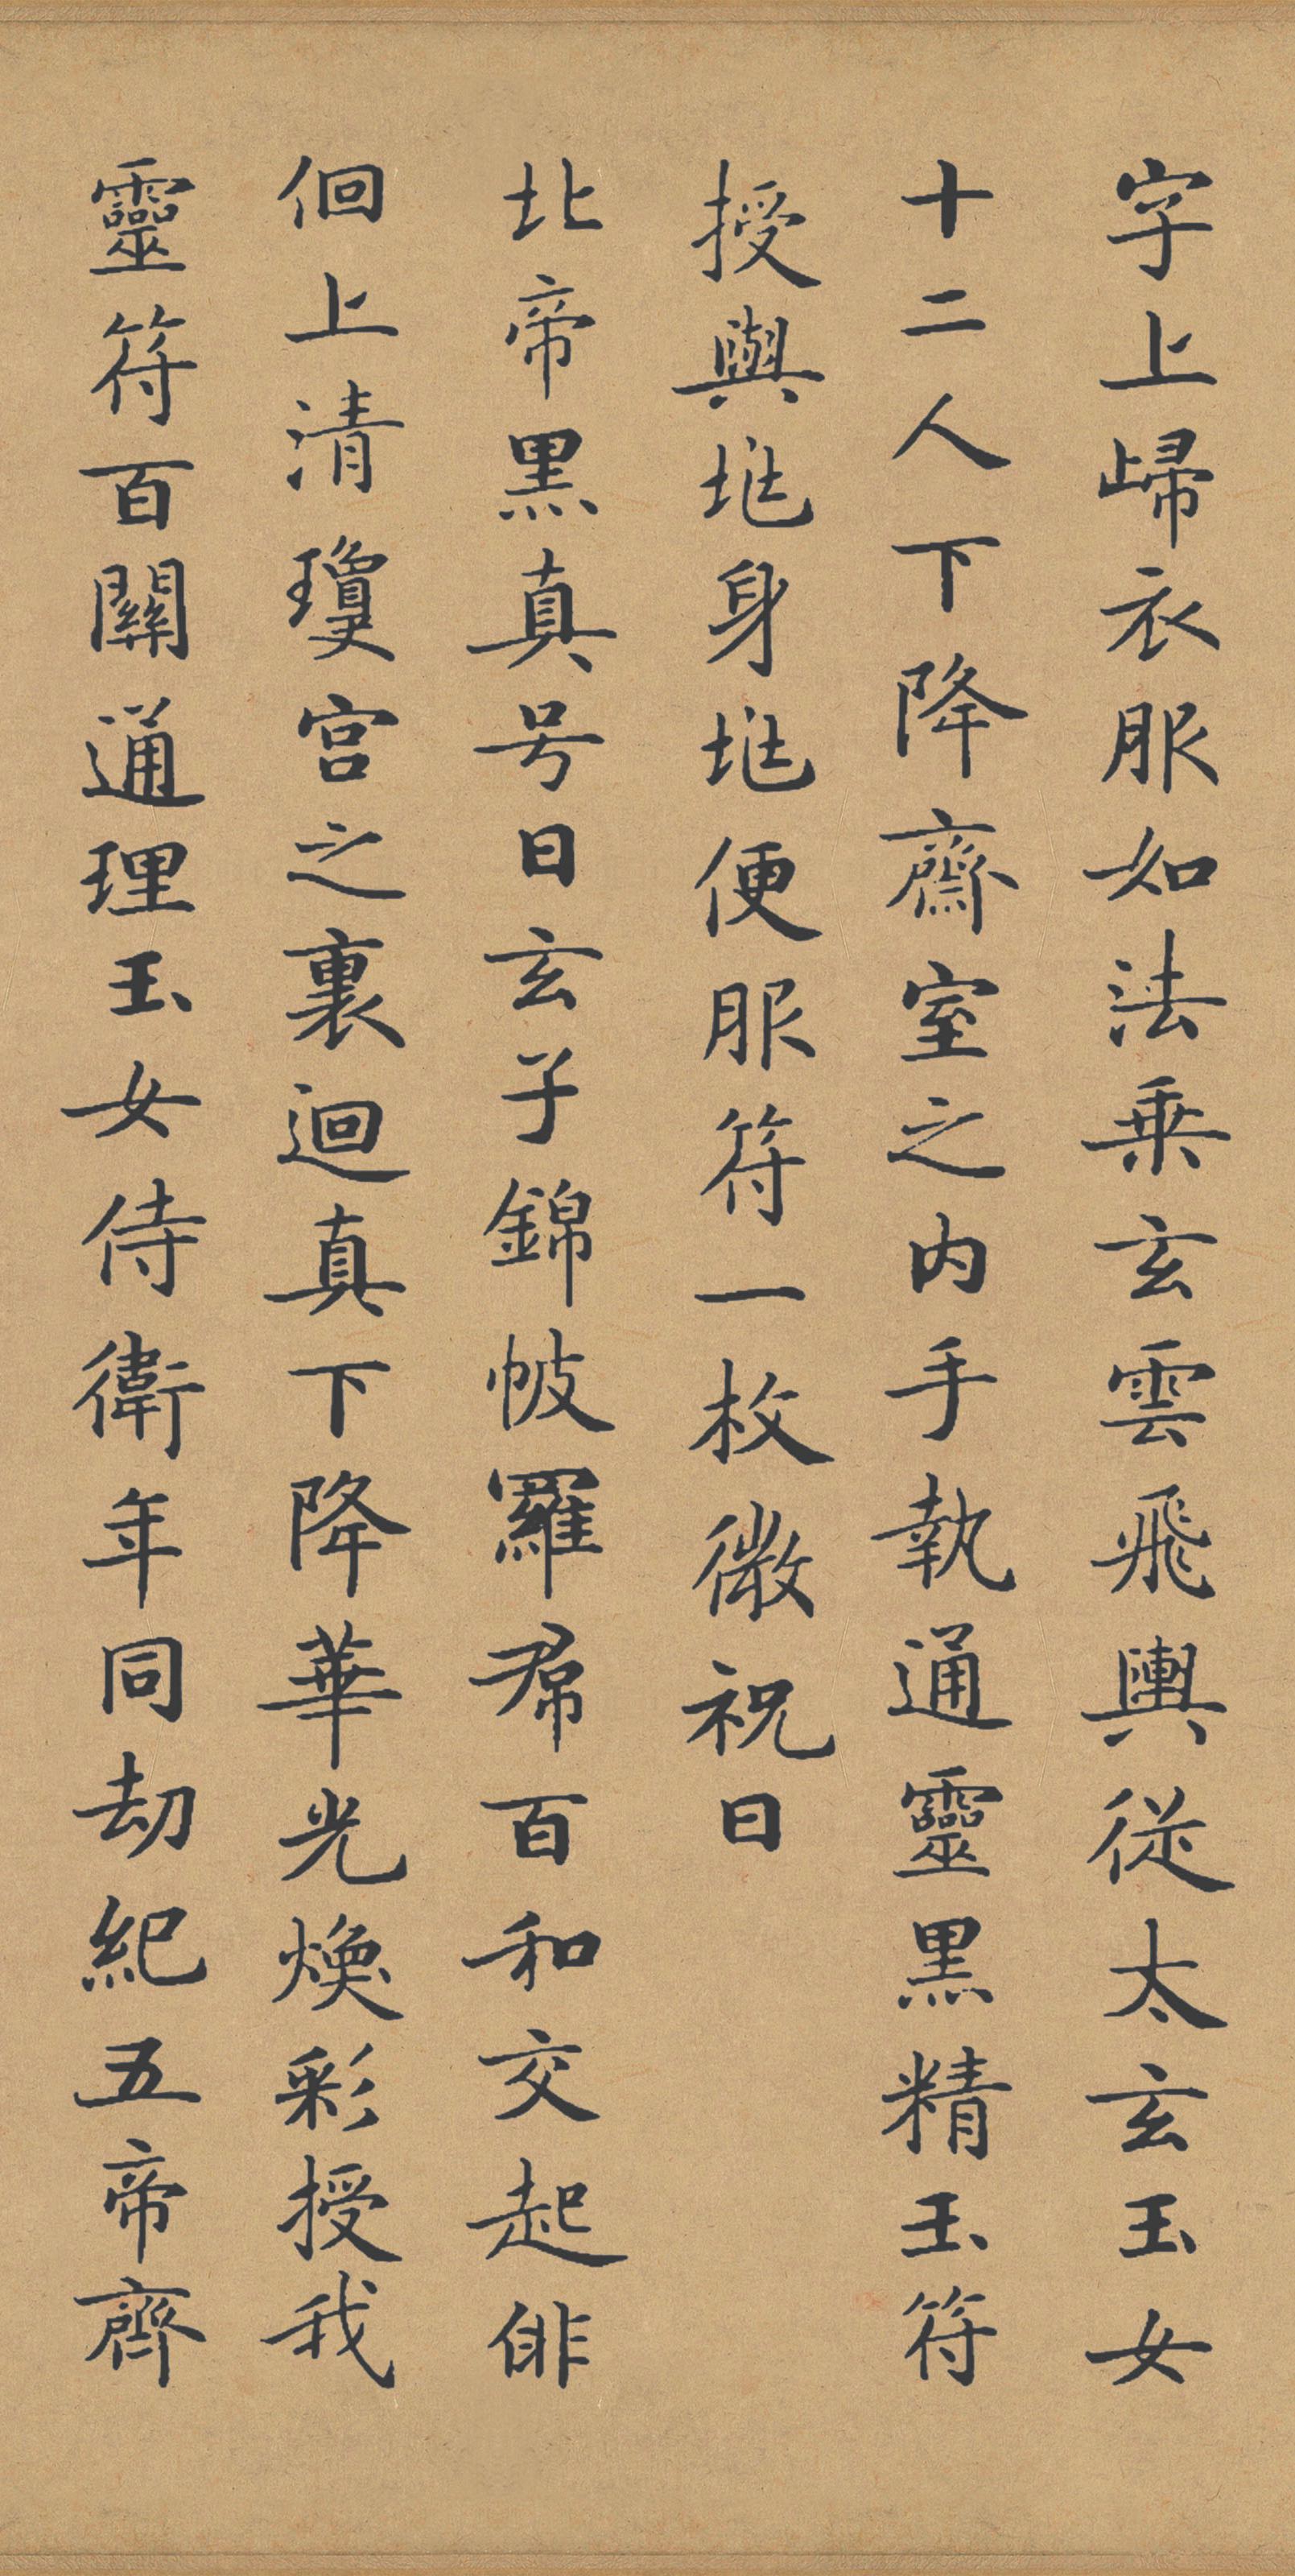 字上歸衣服如法乘玄雲飛輿從太玄玉女
十二人下降齋室之內手執通靈黑精玉符
授與兆身兆便服符一枚微祝曰
北帝黑真号曰玄子錦帔羅帬百和交起俳
佪上清瓊宮之裏迴真下降華光煥彩授我
靈符百關通理玉女侍衛年同劫紀五帝齊